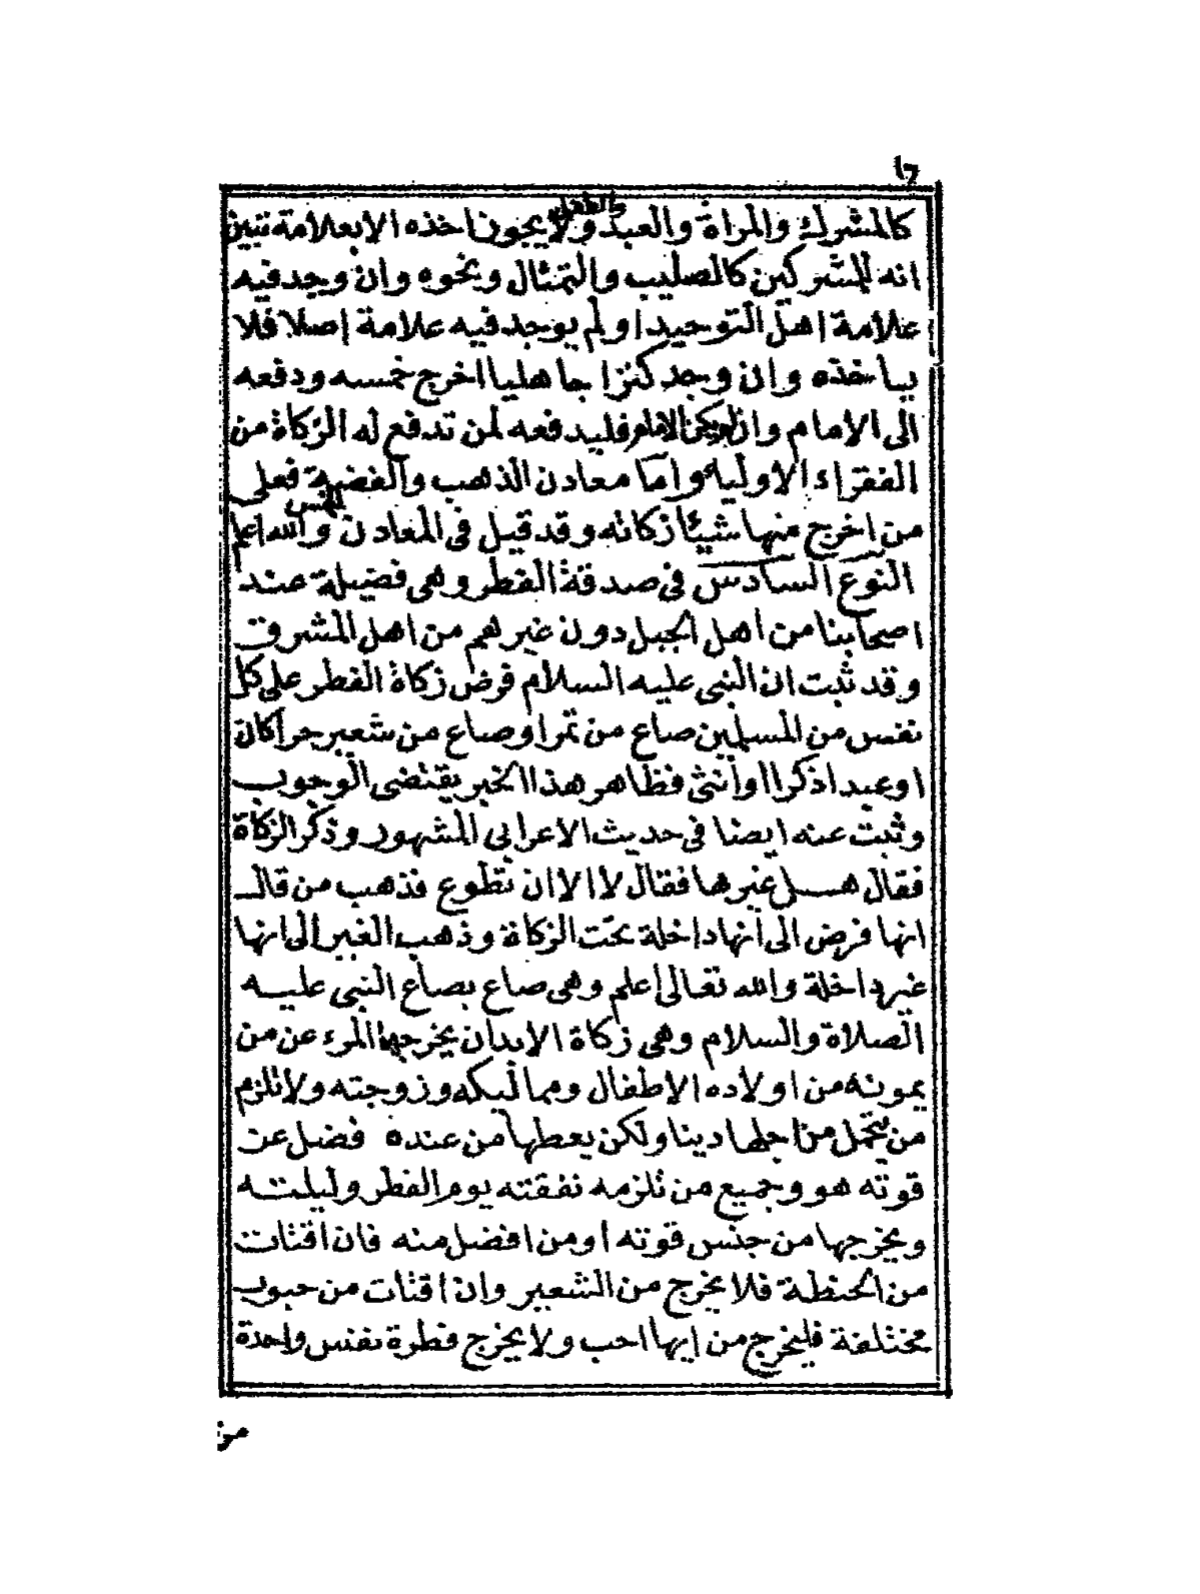 ١٦
كالمشرك والمراة والعبد والطفل ولا يجوز اخذه الا بعلامة تبين
انه للمشركين كالصليب والتمثال ونحوه وان وجد فيه
علامة اهل التوحيد او لم يوجد فيه علامة اصلا فلا
ياخذه وان وجد كنزا جاهليا اخرج خمسه ودفعه
الى الامام وان لم يكن الامام فليدفعه لمن تدفع له الزكاة من
الفقراء الاولياء واما معادن الذهب والفضة فعلى
من اخرج منها شيئا زكاته وقد قيل فى المعادن الخمس والله اعلم
النوع السادس فى صدقة الفطر وهى فضيلة عند
اصحابنا من اهل الجبل دون غيرهم من اهل المشرق
وقد ثبت ان النبى عليه السلام فرض زكاة الفطر على كل
نفس من المسلمين صاع من تمر او صاع من شعير حرا كان
او عبدا ذكرا او أنثى فظاهر هذا الخبر يقتضى الوجوب
وثبت عنه ايضا فى حديث الاعرابى المشهور وذكر الزكاة
فقال هل غيرها فقال لا الا ان تطوع فذهب من قال
انها فرض الى انها داخلة تحت الزكاة وذهب الغير الى انها
غير داخلة والله تعالى أعلم وهى صاع بصاع النبى عليه
الصلاة والسلام وهى زكاة الابدان يخرجها المرء عن من
يمونه من اولاده الاطفال ومماليكه وزوجته ولا تلزم
من يتحمل من اجلها دينا ولكن يعطها من عنده فضل عن
قوته هو وجميع من تلزمه نفقته يوم الفطر وليلته
ويخرجها من جنس قوته أو من افضل منه فان اقتات
من الحنطة فلا يخرج من الشعير وان اقتات من حبوب
مختلفة فليخرج من ايها احب ولا يخرج فطرة نفس واحدة
من